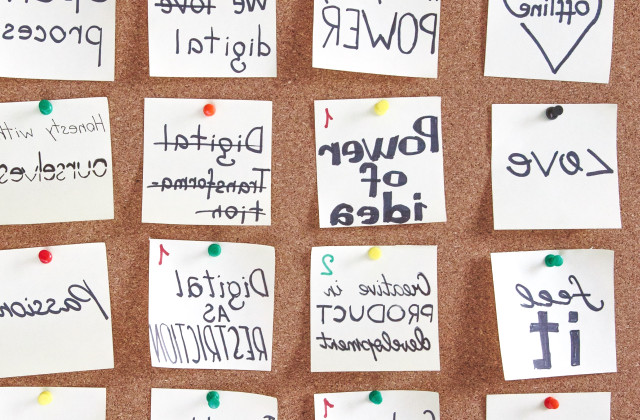 process
We love
digital
POWER
offline
Honesty with
ourselves
Digital
Transforma-
tion
1
Power
of
idea
Love
Passion
1
Digital
AS
RESTRICTION
2
Creative in
PRODUCT
development
feel
it
1